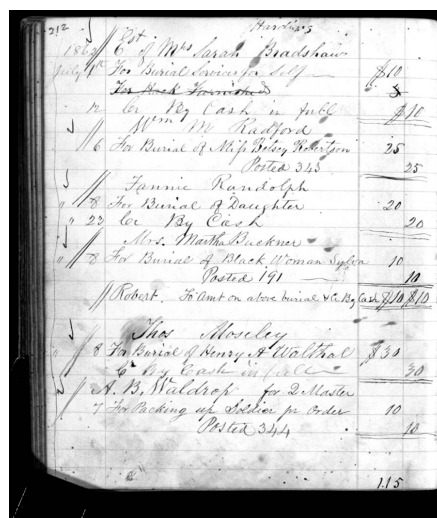 212
Est
1862 C of Mrs Sarah Bradshaw
July 1st For Burial Services for Self $10
For Hack Furnished 3
12 Cr By Cash in full $10
Wm M Radford
6 For Burial of Miss Betsey Robertson 25
Posted 343 25
Fannie Randolph
" 8 For Burial of Daughter 20
" 23 Cr By Cash 20
Mrs. Martha Buckner
" 8 For Burial of Black Woman Sylvia 10
Posted 191 10
Robert. To Amt on above burial & Cr By Cash $10 $10
Thos Moseley
" 8 For Burial of Henry A Walthal $30
Cr By Cash in full 30
A. B. Waldrop for Q Master
7 For Packing up Soldier pr Order 10
Posted 344 10
115